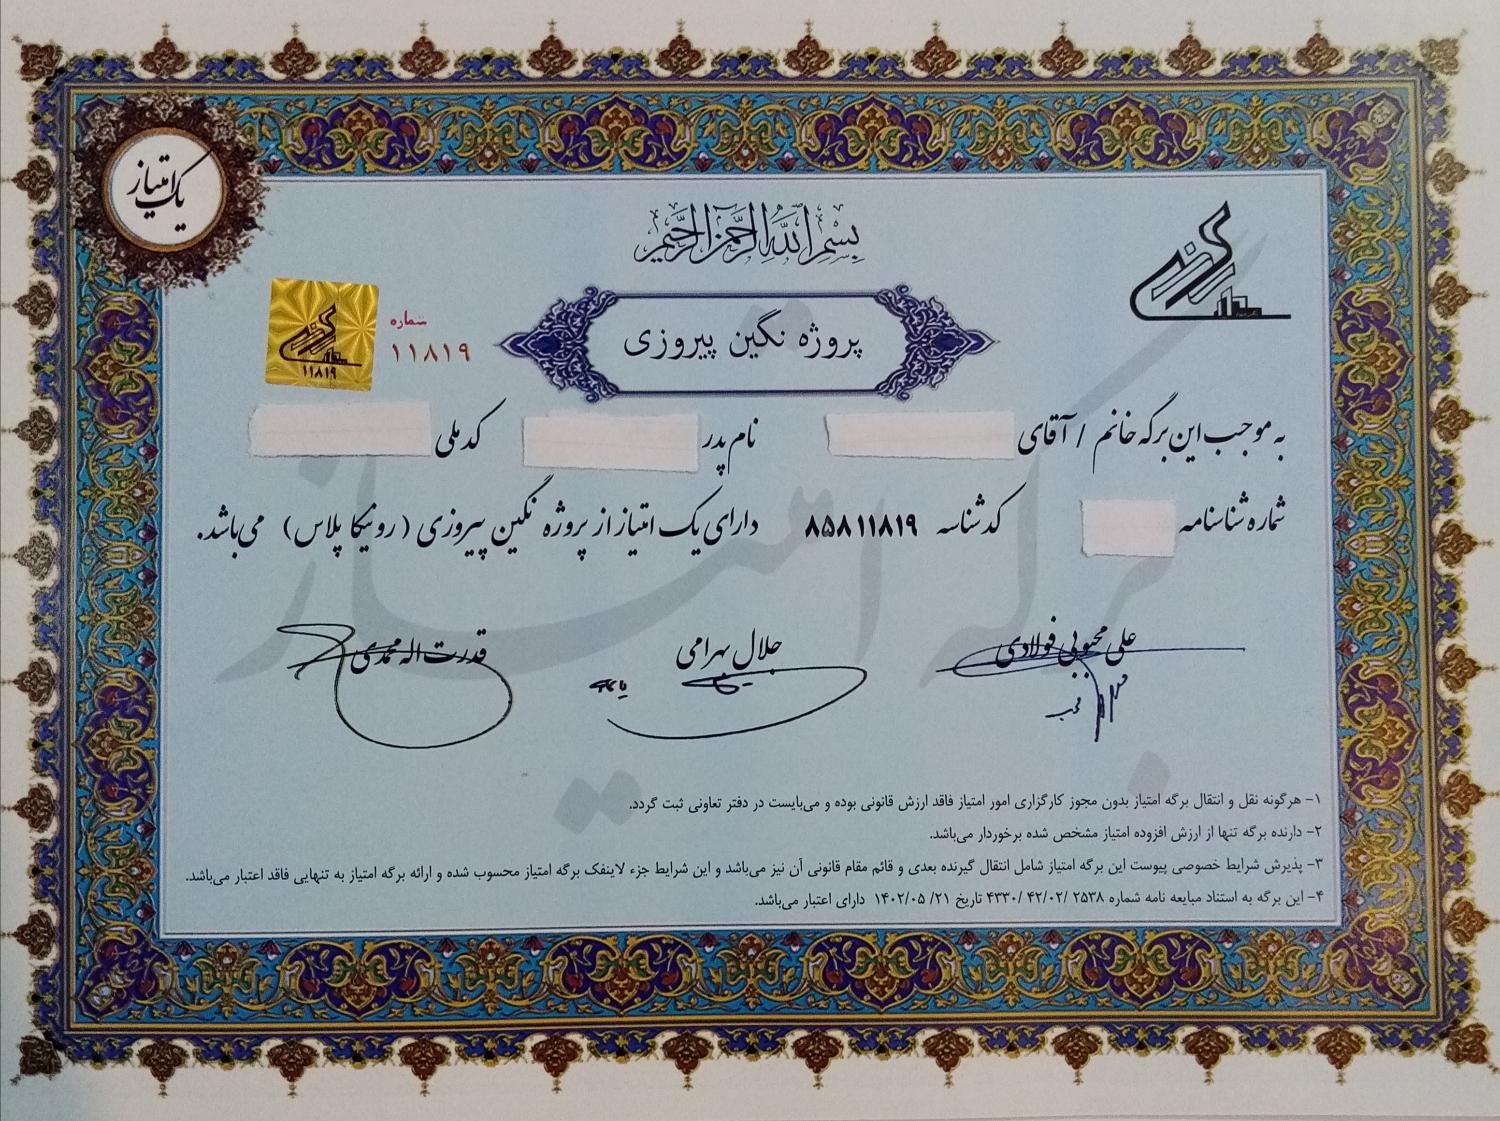 یک امتیاز
بسم الله الرحمن الرحیم
شماره
۱۱۸۱۹
۱۱۸۱۹
پروژه نگین پیروزی
به موجب این برگه خانم / آقای نام پدر کد ملی
شماره شناسنامه کد شناسه ۸۵۸۱۱۸۱۹ دارای یک امتیاز از پروژه نگین پیروزی (رونیکا پلاس) می‌باشد.
علی محبوبی فولادی جلال بهرامی قدرت اله محمدی
برگه امتیاز
۱- هرگونه نقل و انتقال برگه امتیاز بدون مجوز کارگزاری امور امتیاز فاقد ارزش قانونی بوده و می‌بایست در دفتر تعاونی ثبت گردد.
۲- دارنده برگه تنها از ارزش افزوده امتیاز مشخص شده برخوردار می‌باشد.
۳- پذیرش شرایط خصوصی پیوست این برگه امتیاز شامل انتقال گیرنده بعدی و قائم مقام قانونی آن نیز می‌باشد و این شرایط جزء لاینفک برگه امتیاز محسوب شده و ارائه برگه امتیاز به تنهایی فاقد اعتبار می‌باشد.
۴- این برگه به استناد مبایعه نامه شماره ۲۵۳۸ /۴۲/۰۲ /۴۳۳۰ تاریخ ۲۱/ ۱۴۰۲/۰۵ دارای اعتبار می‌باشد.